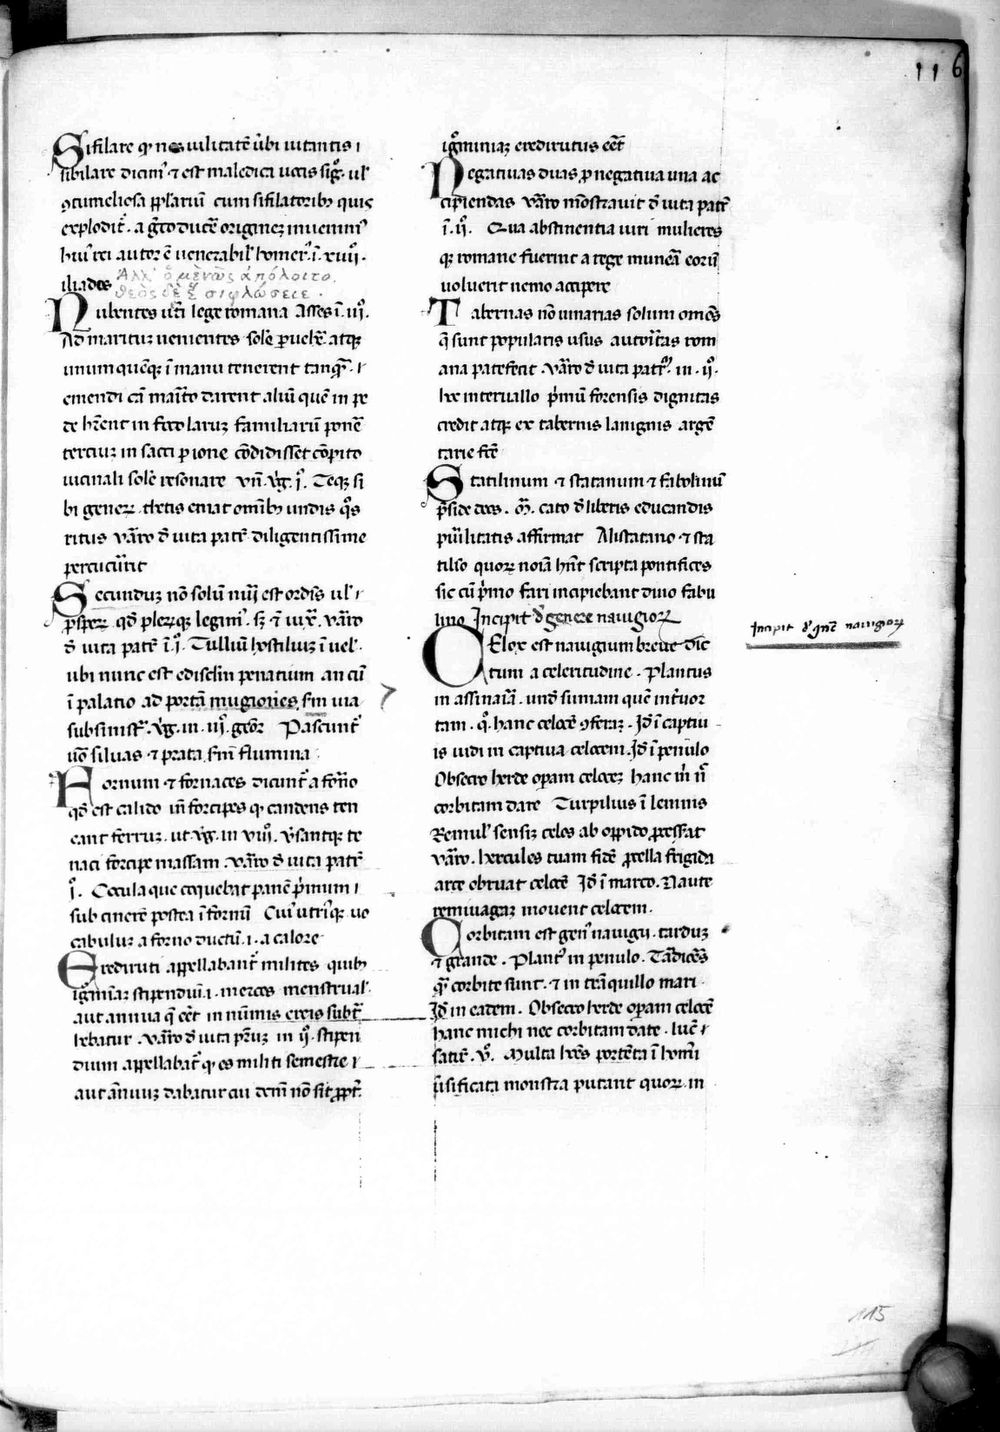 116
Sifilare qͥ nos uilitatē ūbi uitantis i
sibilare dicimꝰ ⁊ est maledici uocis sigº. ul'
ꝯtumeliosa ꝑpl'ariū cum sifilatoribꝫ quis
explodit᷑. a gͣeco ducē origineꝫ inuenimꝰ
huiꝰ rei autor ē uenerabil' homerꝰ. ī. xiiii.
iliados Ἀλλ' ὁ μὲν ὣς ἀπόλοιτο,
θεὸς δὲ ἓ σιφλώσειε.
Nubentes ūti lege romana Asses. ī. iiⁱ.
Ad maritū uenientes solē ꝑuehē. atqꝫ
unum quēqꝫ ī manu tenerent tanqͣ. i
emendi cā maīto darent aliū quē in pe
de hr̄ent in foco laruꝫ familiariū ponē
terciuꝫ in sacci ꝑione cōdidisset cōpito
uicinali solē resonare vn̄. v̄g. iͦ. Teqꝫ si
bi generꝝ thetis emat omībꝫ undis qͦs
ritus vārro d̄ uita patꝝ diligentissime
percucurit
Secunduꝫ nō solū nīī est ordīs ul' i
ꝓsꝑeꝝ qd̄ pleꝝqꝫ legimꝰ. sꝫ ⁊ iuxͣ. vārro
d̄ uita patꝝ ī. iͦ. Tulliū hostiliuꝫ ī uel'
ubi nunc est edis dīm penatium an cū
ī palatio ad portā mugiones sm̄ uia
subsinistͣ. v̄g. in. iiiͦ. georꝝ Pascunt᷑
uō siluas ⁊ prata sm̄ flumina
Fornum ⁊ fornaces dicunt᷑ a formo
qd̄ est calido un̄ forcipes qͥ candens ten
eant ferruꝫ. ut v̄g. in viiiͦ. v̄santqꝫ te
naci forcipe massam vārro d̄ uita patꝝ
iͦ. Cocula que coquebat panē pͥmum i
sub cinere postea ī fornū Cuiꝰ utrīqꝫ uo
cabuluꝫ a forno ductū. i. a calore
Erediruti appellabant᷑ milites quibꝫ
ignīiaꝫ stipendiū. i. merces menstrual'
aut annua q̄ eēt in nūmis ereis subt᷑
hebatur. vārro d̄ uita pr̄uꝫ in iiͦ. stipen
dium appellabat᷑ qͥ es militi semestre i
aut annuuꝫ dabatur cū demī nō sit ꝓpt᷑
ignominiaꝫ eredirutus eēt
Negatiuas duas ꝓ negatiua una ac
cipiendas vārro mōstrauit d̄ uita patꝝ
ī. iiͦ. Qua abstinentia uiri mulieres
qꝫ romane fuerint a rege munera eorū
uoluerit nemo accipere
Tabernas nō uinarias solum om̄es
q̄ sunt popularis usus autoritas rom
ana patefecit. vārro d̄ uita patꝝ. in. iiͦ.
hoc interuallo pͥmū forensis dignitas
credit atqꝫ ex tabernis lanignis argē
tarie fcē
Statilinum ⁊ statanum ⁊ fabolinū
p̄side deos. M̄. cato d̄ liberis educandis
puīlitatis affirmat Alistatano ⁊ sta
tilso quoꝝ noīa hn̄t scripta pontifices
sic cū pͥmo fari incipiebant diuo fabu
lino Incipit d̄ genere nauigioꝝ
Celox est nauigium breue dic
tum a celeritudine. Plautus
in assinaīa. und̄ sumam quē int̄uor
tam. qͦ. hanc celocē ꝯferaꝫ. Id̄ ī captiu
is uidi in captiua celocem. Id̄ ī penulo
Obsecro hercle operam celoceꝫ hanc m̄ n̄
corbitam date Turpilius ī lemnis
Remulꝰ sensiꝫ celos ab oppido ꝓcesserat
vārro. hercules tuam fidē ꝓcella frigida
arce obruat celocē Id̄ ī marco. Naute
remiuagaꝫ mouent celocem.
Corbitam est genꝰ nauigii. tarduꝫ
⁊ grande. Plautꝰ in penulo. Tādicēs
qͣ corbite sunt. ⁊ in trāquillo mari.
Id̄ in eadem. Obsecro hercle operam celocē
hanc michi nec corbitam date. lucē i
satiꝝ. vͦ. Multa hoīes portēta ī homi
v̄sificata monstra putant quoꝝ in
Incipit d̄ genē nauigioꝝ
115